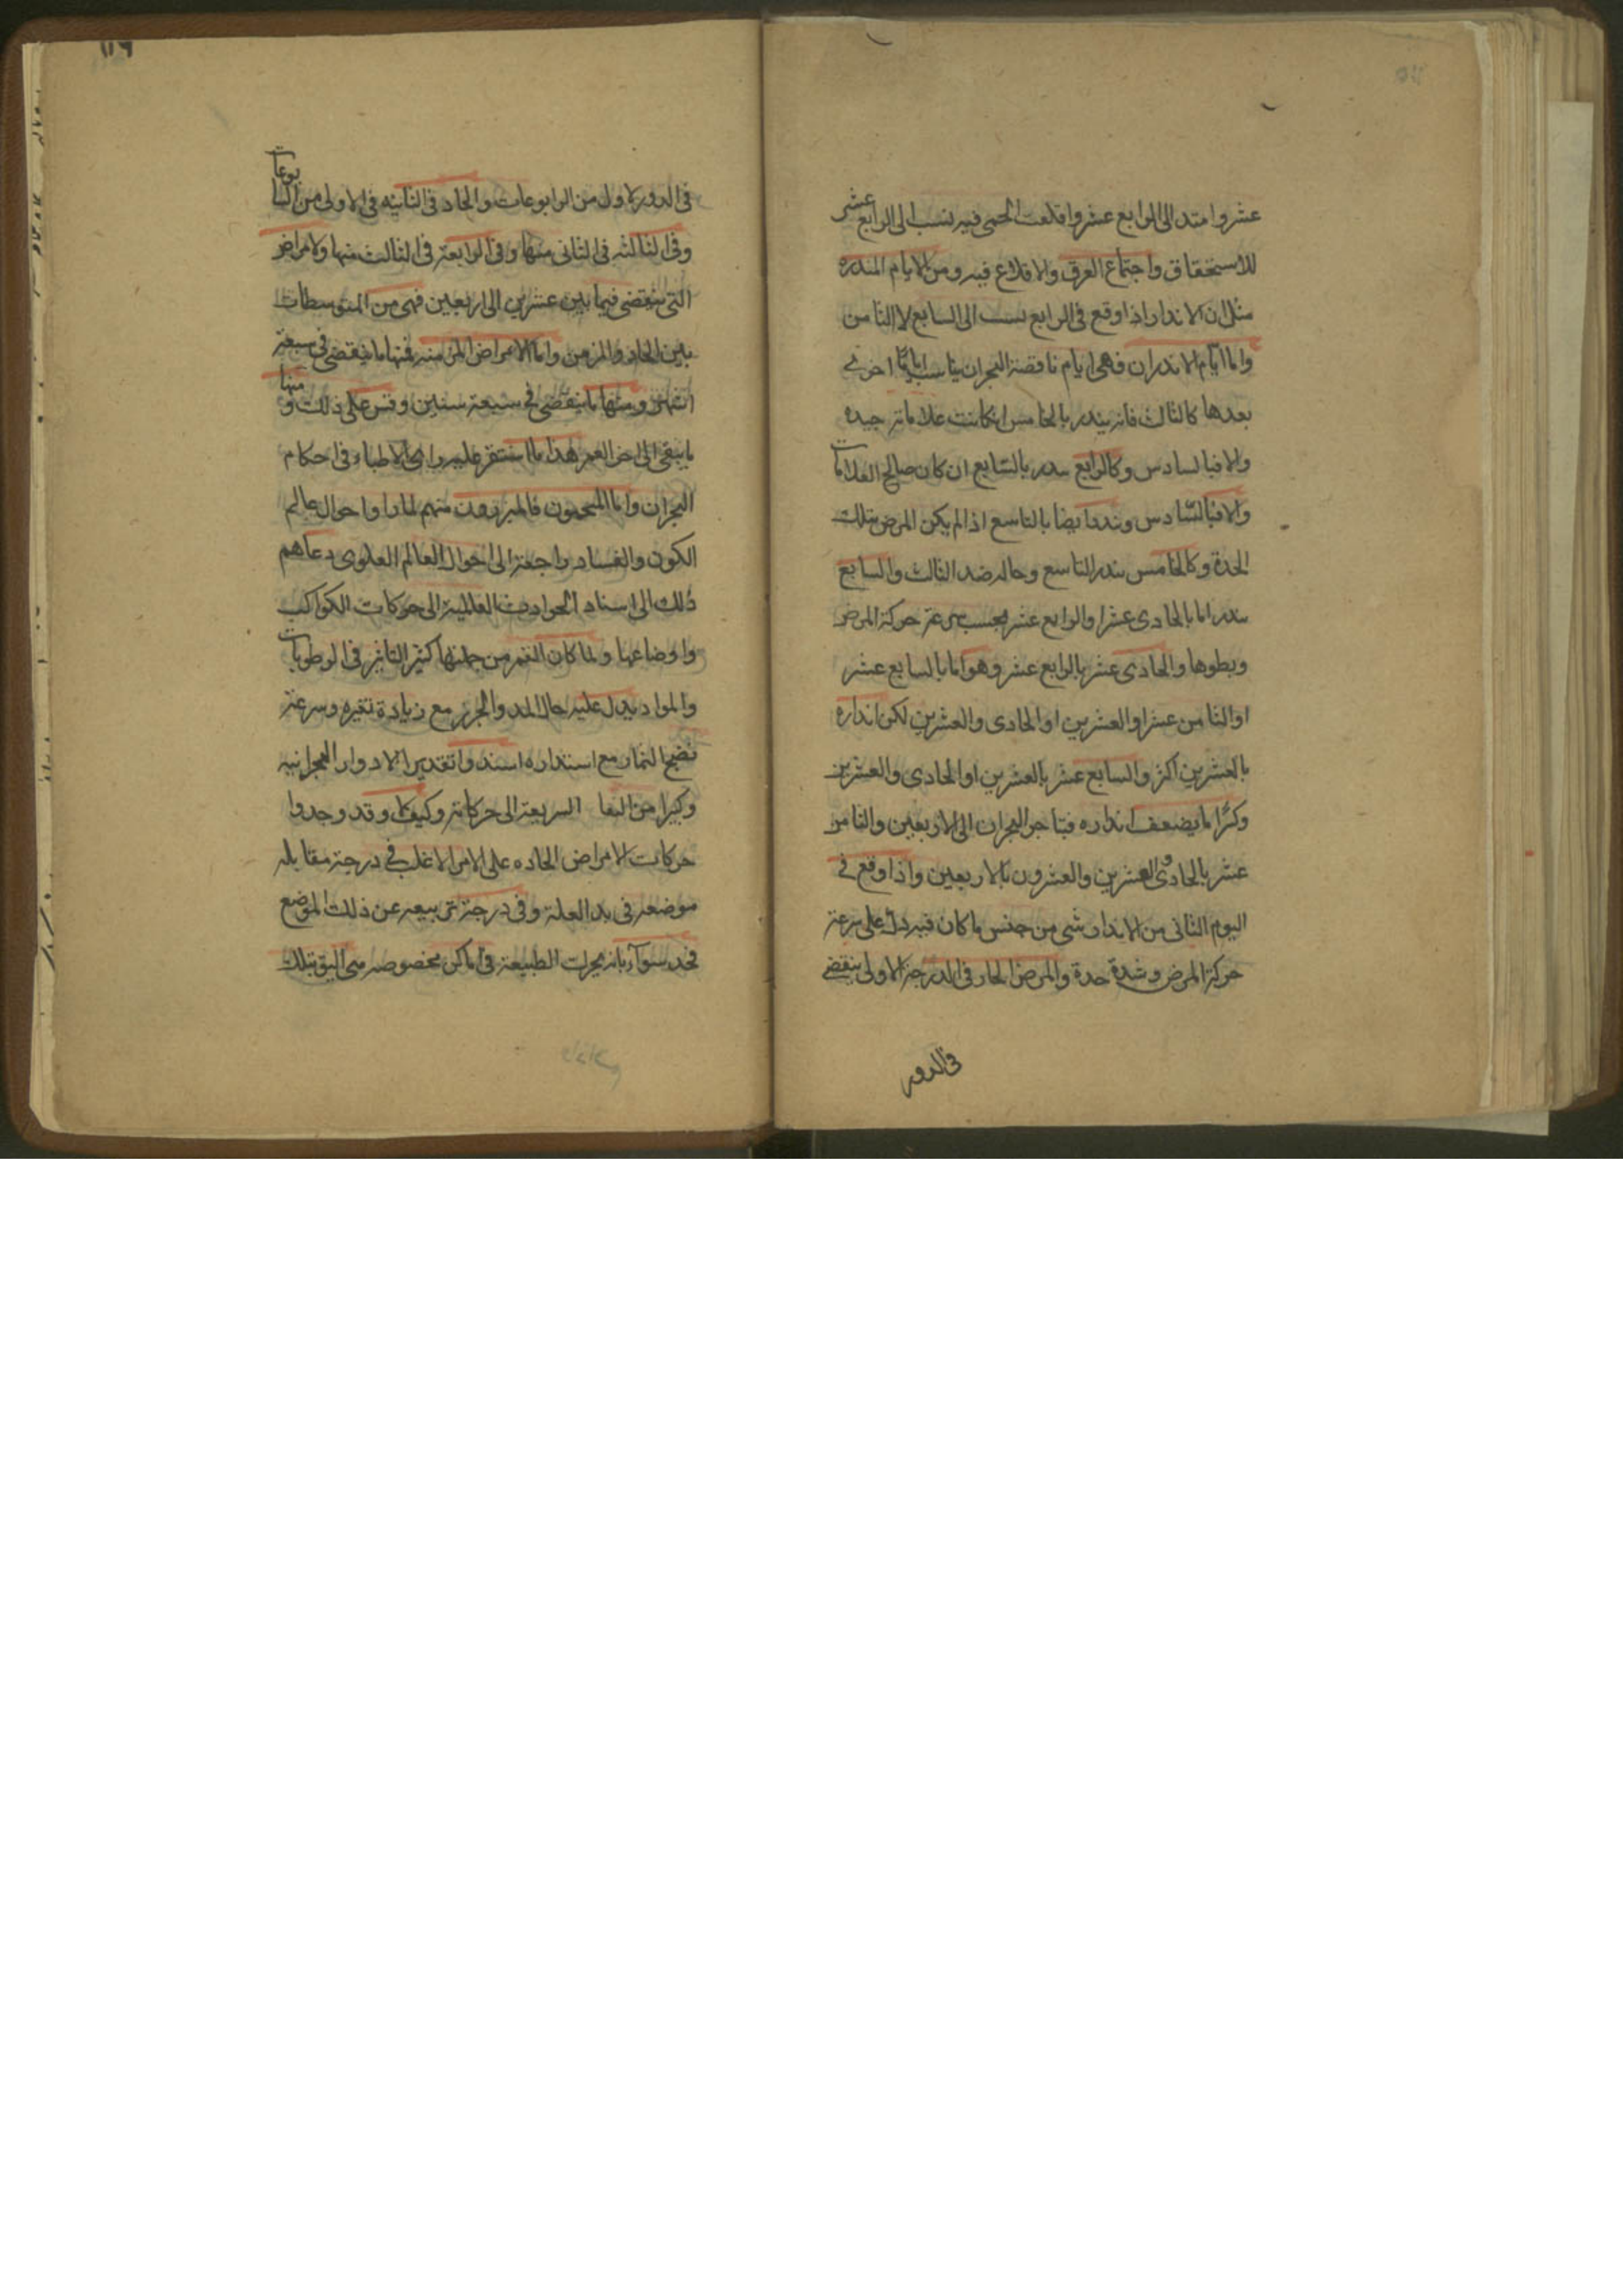 عشر وامتد الى الرابع عشر واقلعت الحمى فيه نسب الى الرابع عشر
للاستحقاق واجتماع العرق والاقلاع فيه ومن الايام المنذره
مثل ان الانذار اذا وقع فى الرابع نسب الى السابع لا الثامن
واما ايام الانذار فهى ايام ناقصة البحران يناسب اياما اخرى
بعدها كالثالث فانه ينذر بالخامس ان كانت علاماته جيده
والا فبالسادس وكالرابع ينذر بالسابع ان كان صالح العلامات
والا فبالسادس وينذر ايضا بالتاسع اذا لم يكن المرض بتلك
الحدة وكالخامس ينذر التاسع وحاله ضد الثالث والسابع
ينذر اما بالحادى عشر او الرابع عشر بحسب سرعة حركة المرض
وبطوها والحادى عشر بالرابع عشر وهو اما بالسابع عشر
او الثامن عشر او العشرين او الحادى والعشرين لكن انذاره
بالعشرين اكثر والسابع عشر بالعشرين او الحادى والعشرين
وكثرا ما يضعف انذاره فيتاخر البحران الى الاربعين والثامن
عشر بالحادى والعشرين والعشرون بالاربعين واذا وقع فى
اليوم الثانى من الانذار شى من جنس ما كان فيه دل على سرعة
حركة المرض وشدة حدة والمرض الحار فى الدرجة الاولى ينقضى
فى الدور
١١٦
فى الدور الاول من الرابوعات والحاد فى الثانيه فى الاولى من السابوعات
وفى الثالثه فى الثانى منها وفى الرابعة فى الثالث منها والامراض
التى ينقضى فيما بين عشرين الى اربعين فهى من المتوسطات
بين الحاد والمزمن واما الامراض المزمنه فمنها ما ينقضى فى سبعة
اشهر ومنها ما ينقضى فى سبعة سنين وقس على ذلك ومنها
ما يبقى الى اخر العمر هذا ما استقر عليه راى الاطباء فى احكام
البحران واما المنجمون فالمبرزون منهم لما راوا احوال عالم
الكون والفساد راجعة الى احوال العالم العلوى دعاهم
ذلك الى اسناد الحوادث العالمية الى حركات الكواكب
واوضاعها ولما كان القمر من جملتها كثير التاثير فى الرطوبات
والمواد يدل عليه حال المد والجزر مع زيادة تغيره وسرعة
نضج الثمار مع استداره اسندوا تقدير الادوار البحرانيه
وكيرا من السريعة الى حركاته وكيف وقد وجدوا
حركات الامراض الحاده على الامر الاغلب فى درجة مقابله
موضعه فى بد العلة وفى درجة تربيعه عن ذلك الموضع
بانه يحرك الطبيعة فى اماكن مخصوصه هى اليق بتلك